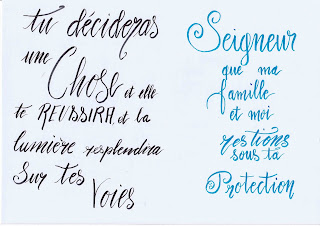 tu décideras
une
Chose et elle
te REUSSIRA, et la
lumière resplendira
Sur tes
Voies
Seigneur
que ma
famille
et moi
restions
sous ta
Protection